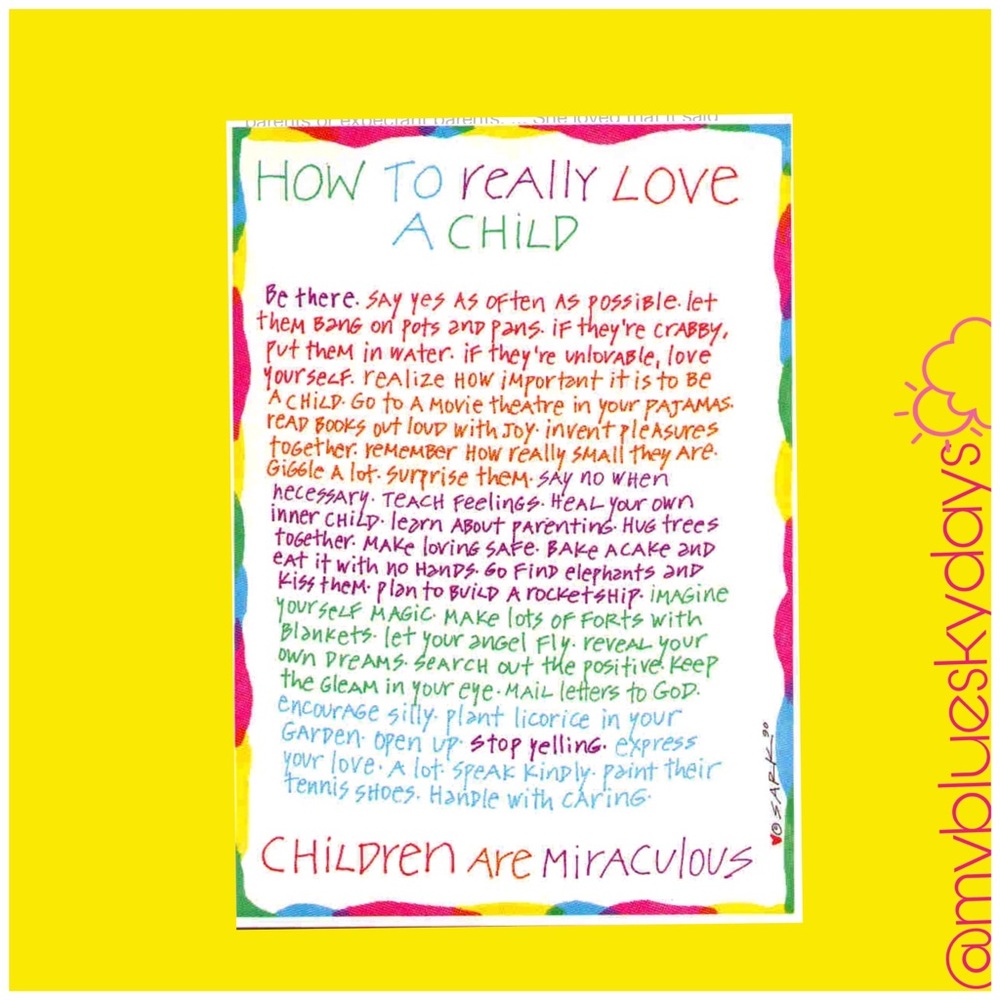 parents or expectant parents. ... She loved that it said
HOW TO reALLY LOVE
A CHiLD
Be there. SAY yes AS OFten AS possible. let
them BANG on pots and pans. iF they're CrABBY,
put them in WAter. iF they're unlovable, love
yourself. reALize HOW important it is to Be
A CHiLD. GO to A Movie theatre in your PAJAMAS.
reAD BOOKS out louD with JOY. invent pleAsures
together. reMeMBer HOW really SMAll they Are.
GiGGle A lot. Surprise them. SAY no WHen
necessary. TEACH Feelings. HEAL your own
inner CHiLD. learn ABout pArentinG. HUG trees
together. MAKe loving SAFe. BAKe A CAKe and
eAt it with no HAnDS. GO FinD elephants and
Kiss them. plAn to BuilD A rocKetSHip. iMAGine
yourself MAGiC. MAKe lots oF Forts with
BlanKets. let your angel Fly. reveAL your
own DreAMS. SeArCH out the positive. Keep
the GleAM in your eye. MAiL letters to GoD.
encourAGe silly. plant licorice in your
GArDen. Open up. Stop yelling. express
your love. A lot. SpeAK Kindly. paint their
tennis SHoes. HAnDle with CArinG.
CHiLDren Are MirACulous
♥©SARK 90
@myblueskydays